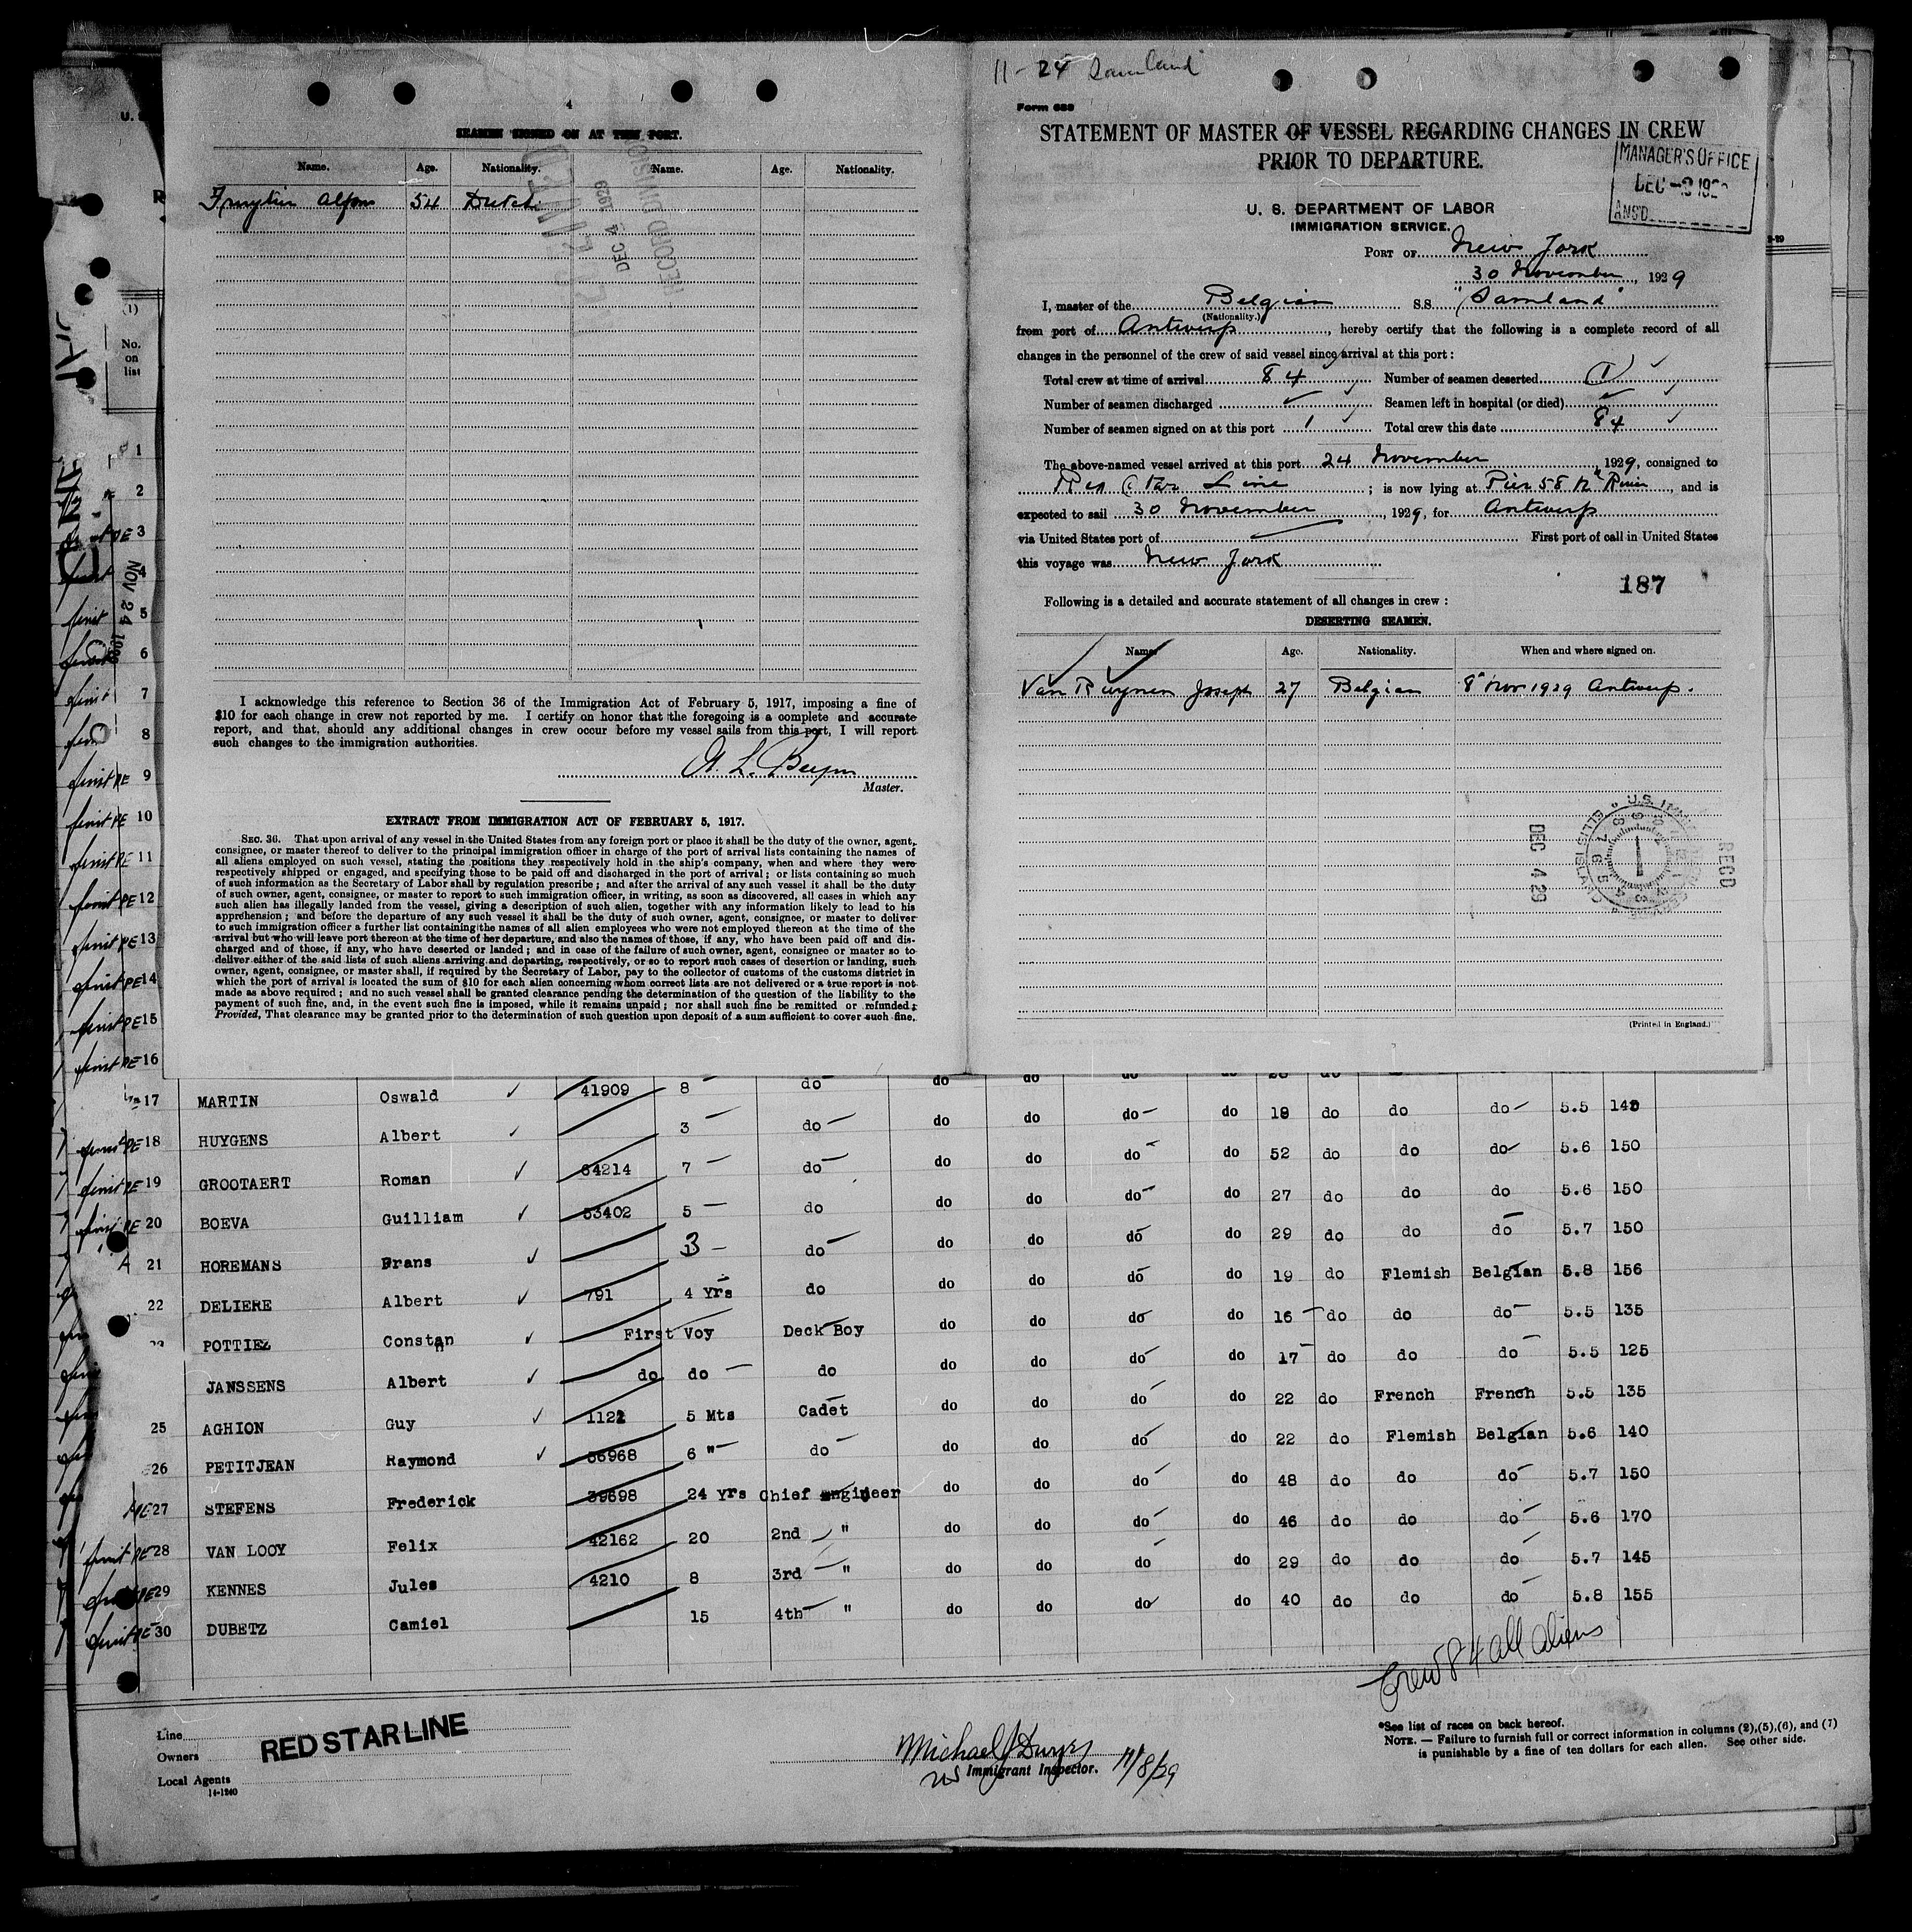 11 - 24 Samland
4
SEAMEN SIGNED ON AT THIS PORT.
Name. Age. Nationality. Name. Age. Nationality.
Alfons 54 Dutch
RECORD DIVISION
DEC 4 1929
I acknowledge this reference to Section 36 of the Immigration Act of February 5, 1917, imposing a fine of
$10 for each change in crew not reported by me. I certify on honor that the foregoing is a complete and accurate
report, and that, should any additional changes in crew occur before my vessel sails from this port, I will report
such changes to the immigration authorities.
Master.
EXTRACT FROM IMMIGRATION ACT OF FEBRUARY 5, 1917.
SEC. 36. That upon arrival of any vessel in the United States from any foreign port or place it shall be the duty of the owner, agent,
consignee, or master thereof to deliver to the principal immigration officer in charge of the port of arrival lists containing the names of
all aliens employed on such vessel, stating the positions they respectively hold in the ship's company, when and where they were
respectively shipped or engaged, and specifying those to be paid off and discharged in the port of arrival; or lists containing so much
of such information as the Secretary of Labor shall by regulation prescribe; and after the arrival of any such vessel it shall be the duty
of such owner, agent, consignee, or master to report to such immigration officer, in writing, as soon as discovered, all cases in which any
such alien has illegally landed from the vessel, giving a description of such alien, together with any information likely to lead to his
apprehension; and before the departure of any such vessel it shall be the duty of such owner, agent, consignee, or master to deliver
to such immigration officer a further list containing the names of all alien employees who were not employed thereon at the time of the
arrival but who will leave port thereon at the time of her departure, and also the names of those, if any, who have been paid off and dis-
charged and of those, if any, who have deserted or landed; and in case of the failure of such owner, agent, consignee or master so to
deliver either of the said lists of such aliens arriving and departing, respectively, or so to report such cases of desertion or landing, such
owner, agent, consignee, or master shall, if required by the Secretary of Labor, pay to the collector of customs of the customs district in
which the port of arrival is located the sum of $10 for each alien concerning whom correct lists are not delivered or a true report is not
made as above required; and no such vessel shall be granted clearance pending the determination of the question of the liability to the
payment of such fine, and, in the event such fine is imposed, while it remains unpaid; nor shall such fine be remitted or refunded:
Provided, That clearance may be granted prior to the determination of such question upon deposit of a sum sufficient to cover such fine.
Form 689
STATEMENT OF MASTER OF VESSEL REGARDING CHANGES IN CREW
PRIOR TO DEPARTURE.
MANAGER'S OFFICE
DEC -3 192
ANS'D
U. S. DEPARTMENT OF LABOR
IMMIGRATION SERVICE.
PORT OF New York
30 November, 1929
I, master of the Belgian S.S. "Samland"
(Nationality.)
from port of Antwerp, hereby certify that the following is a complete record of all
changes in the personnel of the crew of said vessel since arrival at this port:
Total crew at time of arrival 84 Number of seamen deserted 1
Number of seamen discharged Seamen left in hospital (or died)
Number of seamen signed on at this port 1 Total crew this date 84
The above-named vessel arrived at this port 24 November, 1929, consigned to
Red Star Line; is now lying at Pier 58 N River, and is
expected to sail 30 November, 1929, for Antwerp
via United States port of First port of call in United States
this voyage was New York
187
Following is a detailed and accurate statement of all changes in crew:
DESERTING SEAMEN.
Name Age. Nationality. When and where signed on.
Van Ruynen Joseph 27 Belgian 8 Nov 1929 Antwerp.
REC'D
DEC 4 29
(Printed in England.)
(1)
No.
on
list
NOV 24
1
2
3
4
5
6
7
8
9
10
11
12
13
14
15
16
17 MARTIN Oswald 41909 8 do do do do
18 HUYGENS Albert 3 do do do do do 19 do do do 5.5
19 GROOTAERT Roman 64214 7 do do do do do 52 do do do 5.6 150
20 BOEVA Guilliam 53402 5 do do do do do 27 do do do 5.6 150
21 HOREMANS Frans 3 do do do do do 29 do do do 5.7 150
22 DELIERE Albert 791 4 Yrs do do do do do 19 do Flemish Belgian 5.8 156
POTTIEZ Constan First Voy Deck Boy do do do do 16 do do do 5.5 135
JANSSENS Albert do do do do do do do 17 do do do 5.5 125
25 AGHION Guy 1122 5 Mts Cadet do do do do 22 do French French 5.5 135
26 PETITJEAN Raymond 56968 6 " do do do do do 22 do Flemish Belgian 5.6 140
27 STEFENS Frederick 39698 24 Yrs Chief engineer do do do do 48 do do do 5.7 150
28 VAN LOOY Felix 42162 20 2nd " do do do do 46 do do do 5.6 170
29 KENNES Jules 4210 8 3rd " do do do do 29 do do do 5.7 145
30 DUBETZ Camiel 15 4th " do do do do 40 do do do 5.8 155
Crew 84 all aliens
Line
Owners
Local Agents
14-1240
RED STAR LINE
Michael J Dwyer
US Immigrant Inspector. 11/8/29
*See list of races on back hereof.
NOTE. — Failure to furnish full or correct information in columns (2),(5),(6), and (7)
is punishable by a fine of ten dollars for each alien. See other side.